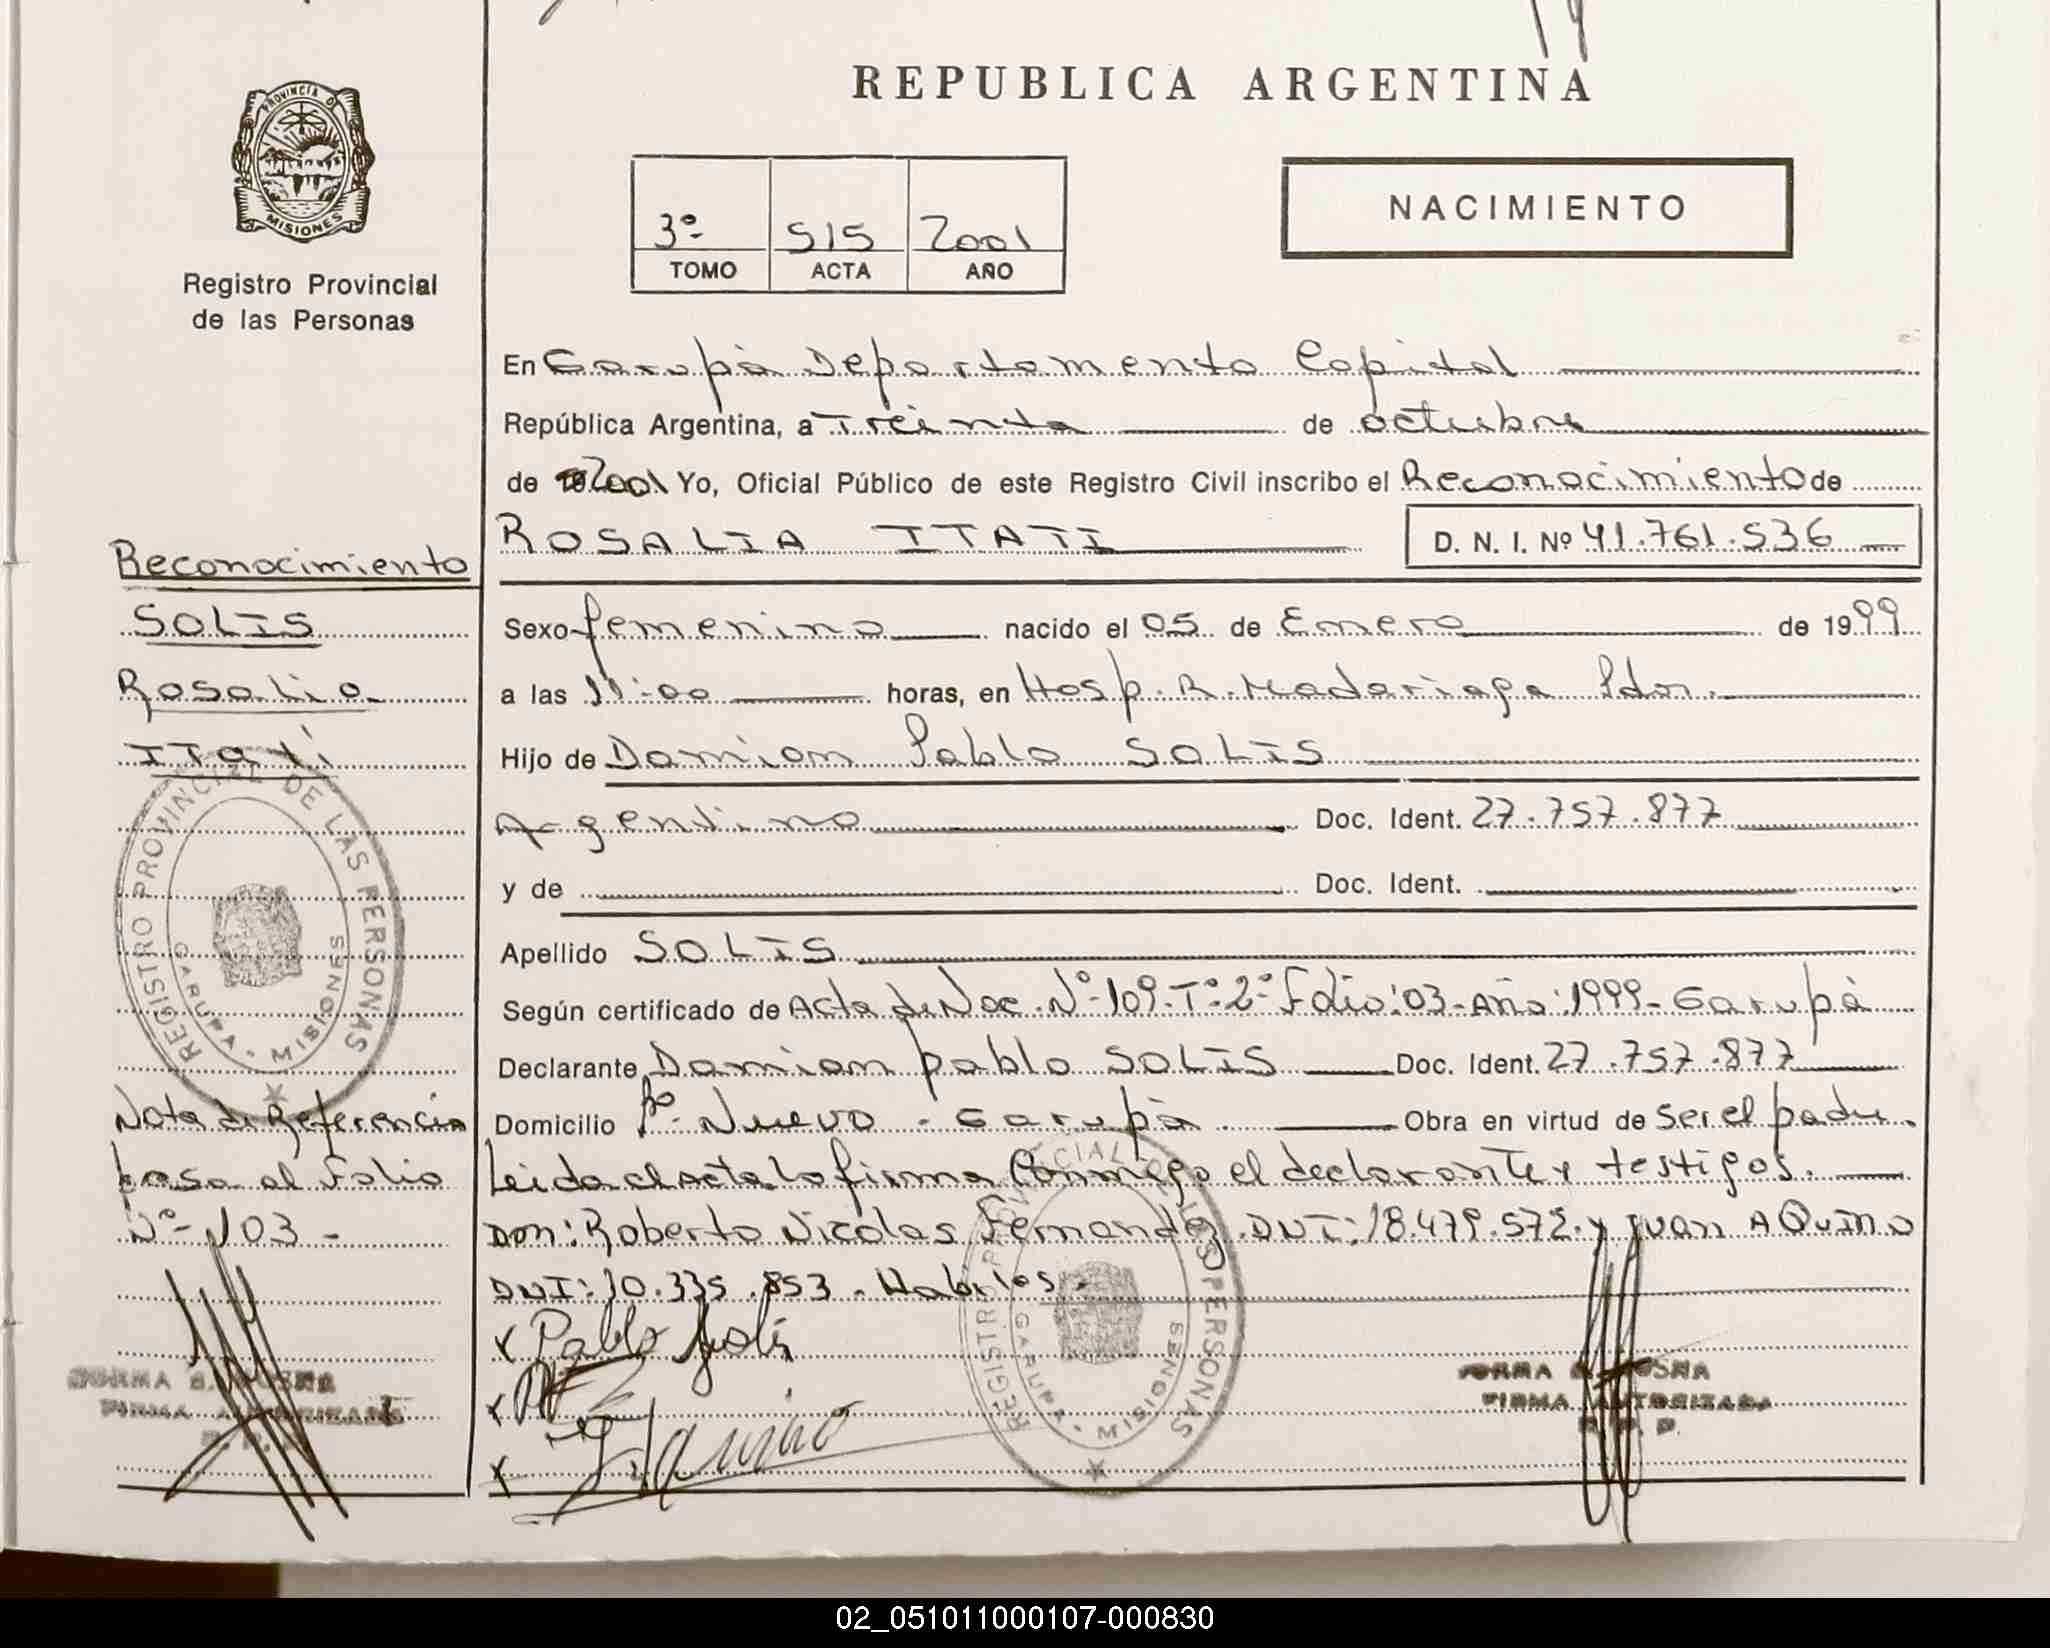 REPUBLICA ARGENTINA
PROVINCIA D
MISIONES
Registro Provincial
de las Personas
3º
515
2001
TOMO
ACTA
AÑO
NACIMIENTO
En Garupà Departamento Capital
República Argentina, a Treinta de octubre
de 2001 Yo, Oficial Público de este Registro Civil inscribo el Reconocimiento de
ROSALIA ITATI D. N. I. Nº 41.761.536
Sexo femenino nacido el 05 de Enero de 1999
a las 11:00 horas, en Hosp. R. Madariaga Pdas.
Hijo de Damian Pablo SOLIS
Argentino Doc. Ident. 27.757.877
y de Doc. Ident.
Apellido SOLIS
Según certificado de Acta de Nac. Nº-109-Tº-2º Folio:03-Año:1999-Garupà
Declarante Damian pablo SOLIS Doc. Ident. 27.757.877
Domicilio Bº-Nuevo - Garupà. Obra en virtud de Ser el padre.
Leida el acta la firma Conmigo el declarante y testigos.
DON: Roberto Nicolas Fernandez. DNI: 18.479.572 y Juan AQuino
DNI: 10.335.853 - Habiles.
x Pablo Solis
x
x
Reconocimiento
SOLIS
Rosalia
ITati
REGISTRO PROVINCIAL DE LAS PERSONAS
GARUPA - MISIONES
Nota de Referencia
pasa al Folio
Nº-103-
FIRMA AUTORIZADA
REGISTRO PROVINCIAL DE LAS PERSONAS
GARUPA - MISIONES
FIRMA AUTORIZADA
R. P. P.
02_051011000107-000830